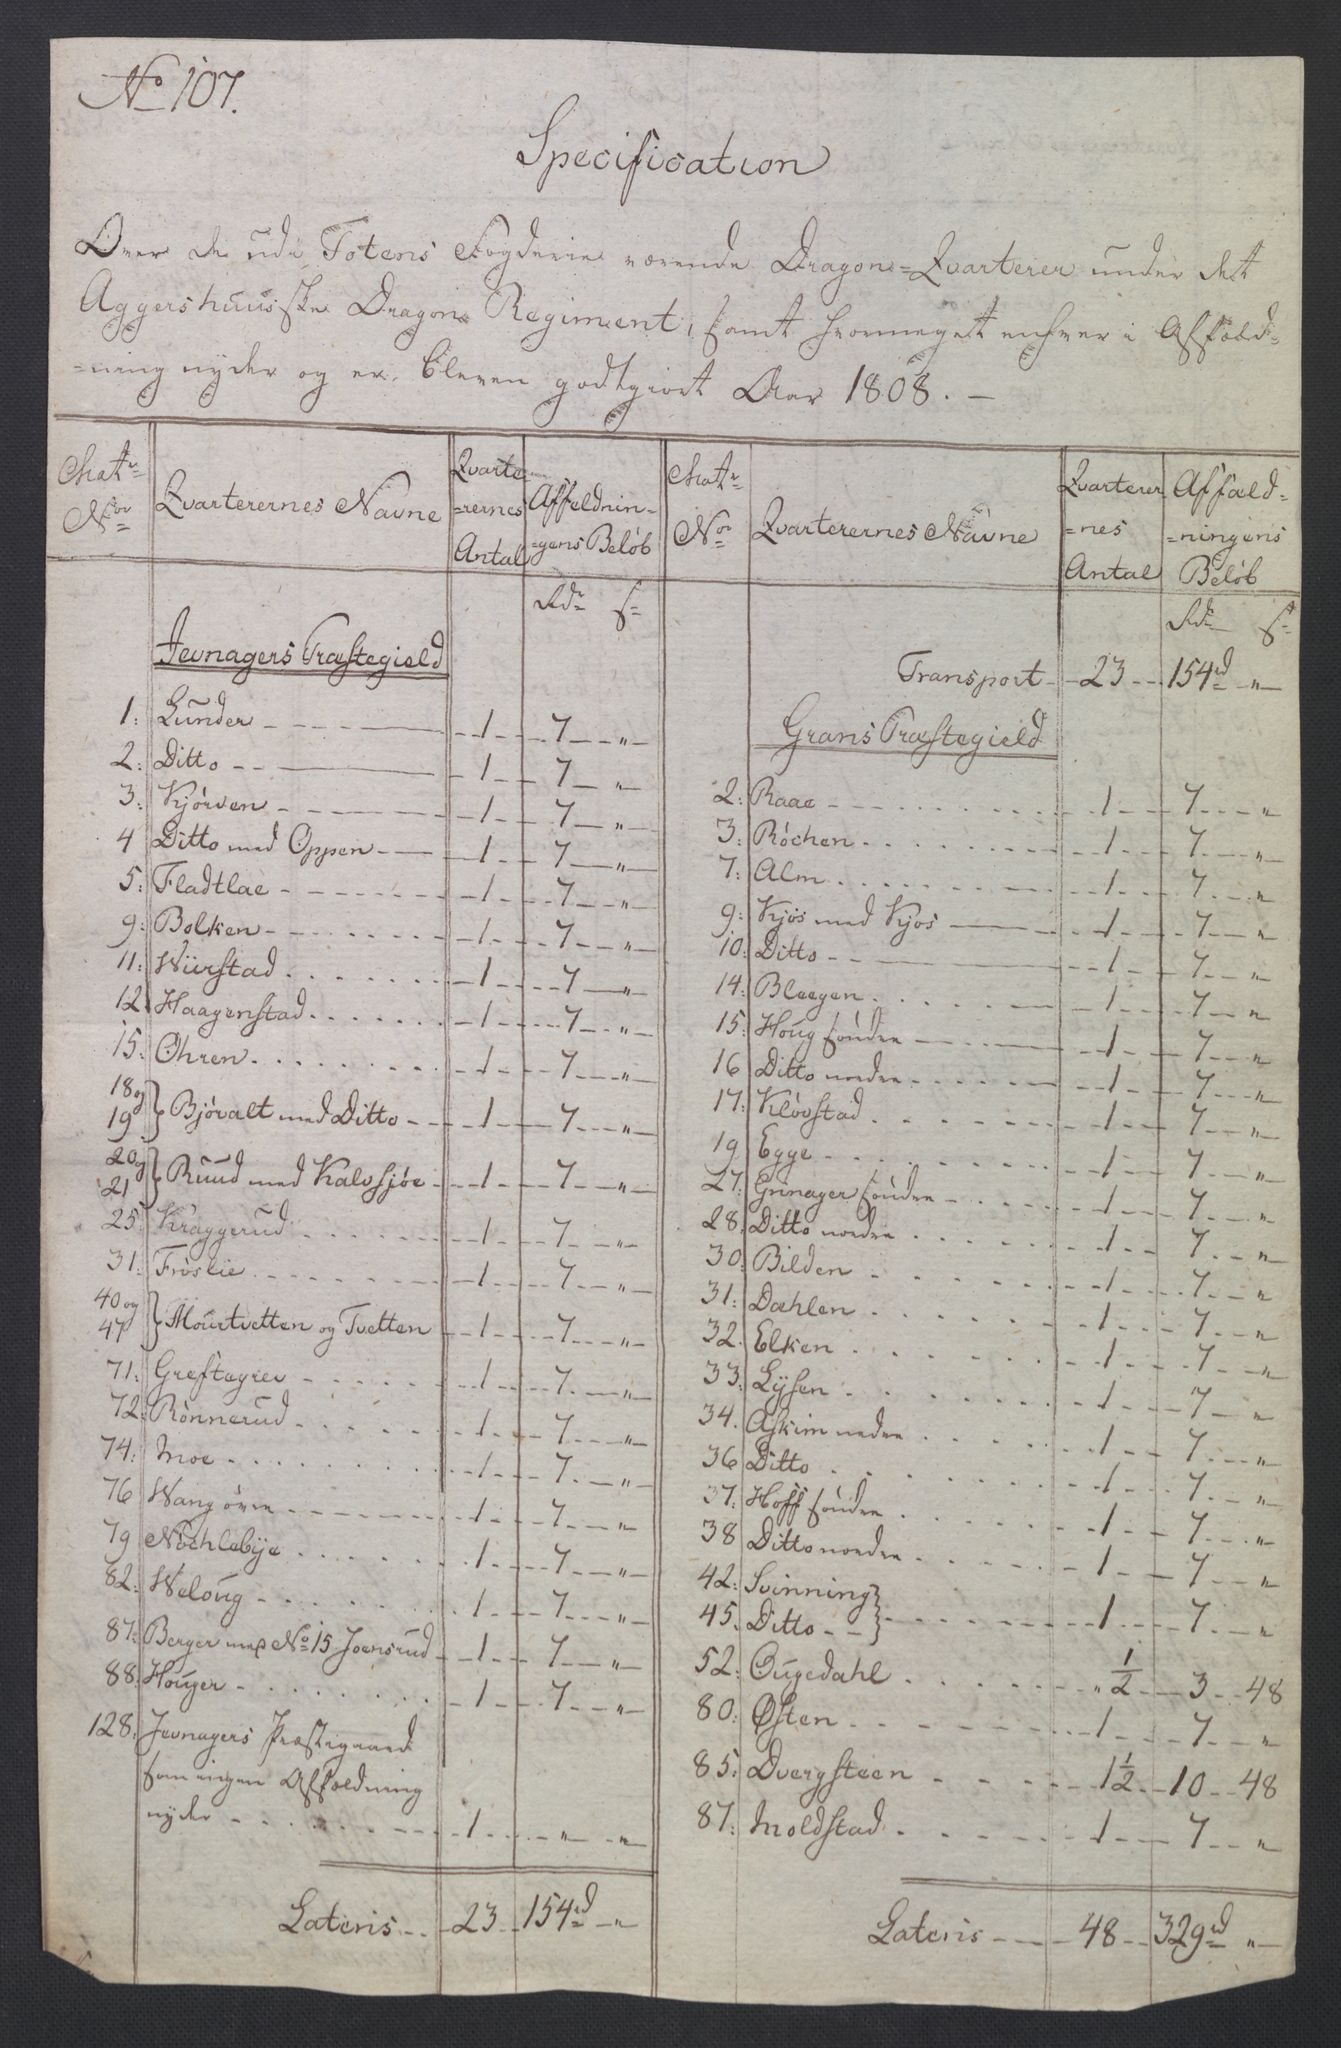 No 107.
Specification
Over de udi Totens Fogderie værende Dragon-Qvarterer under det
Aggershuusske Dragon Regiment, samt hvormeget enhver i Affæld-
-ning nyder og er bleven godtgiort Aar 1808. —
Matr. Nor | Qvarterernes Navne | Qvarte-rernes Antal | Affeldnin-gens Beløb | Matr. Nor | Qvarterernes Navne | Qvarterer-nes Antal | Affæld-ningens Beløb
Rdr s
Jevnagers Præstegield
1: Lunder 1 7 "
2: Ditto 1 7 "
3: Kjørven 1 7 "
4 Ditto med Oppen 1 7 "
5: Fladtlae 1 7 "
9: Bolken 1 7 "
11: Wiirstad 1 7 "
12 Haagenstad 1 7 "
15: Ohren 1 7 "
18 og 19 } Bjøralt med Ditto 1 7 "
20 og 21 } Ruud med Kalvsjøe 1 7 "
25 Kraggerud 1 7 "
31: Frøslie 1 7 "
40 og 47 } Mourtvetten og Tvetten 1 7 "
71: Greftegrev 1 7 "
72: Rønnerud 1 7 "
74: Moe 1 7 "
76 Wang øvre 1 7 "
79 Nøchlebye 1 7 "
82: Weloug 1 7 "
87: Berger med No 15 Joensrud 1 7 "
88: Houger 1 7 "
128: Jevnagers Præstegaard
som ingen Affældning
nyder 1 " "
Lateris 23 154rd "
Rdr s
Transport 23 154rd "
Grans Præstegield
2: Raae 1 7 "
3: Røchen 1 7 "
7: Alm 1 7 "
9: Kjøs med Kjos 1 7 "
10: Ditto 1 7 "
14: Bleegen 1 7 "
15: Houg søndre 1 7 "
16 Ditto nordre 1 7 "
17: Kløvstad 1 7 "
19 Egge 1 7 "
27: Grinager søndre 1 7 "
28: Ditto nordre 1 7 "
30: Bilden 1 7 "
31: Dæhlen 1 7 "
32. Elken 1 7 "
33: Lysen 1 7 "
34. Askim nedre 1 7 "
36 Ditto 1 7 "
37: Hoff søndre 1 7 "
38 Ditto nordre 1 7 "
42: Svinning }
45. Ditto } 1 7 "
52: Ougedahl " 1/2 3 48
80: Østen 1 7 "
85: Dvergsteen 1 1/2 10 48
87: Moldstad 1 7 "
Lateris 48 329rd "